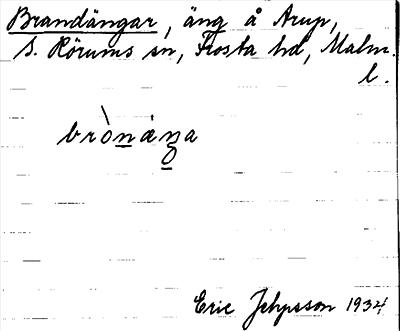 Brandängar, äng å Arup,
S. Rörums sn, Frosta hd, Malm.
l.
brònánga
Eric Jehpsson 1934